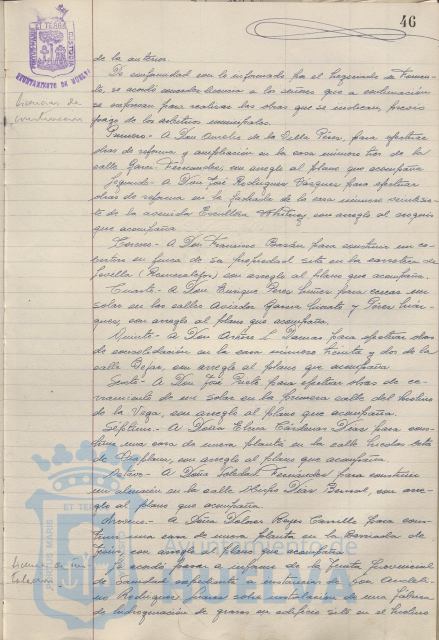 46
AYUNTAMIENTO DE HUELVA
Licencias de
construcción
de la anterior.
De conformidad con lo informado por el Negociado de Fomen-
to, se acordó conceder licencia a los señores que a continuación
se expresan para realizar las obras que se indican, previo
pago de los arbitrios municipales.
Primero.- A Don Aurelio de la Villa Pérez, para efectuar
obras de reforma y ampliación en la casa número tres de la
calle Garci Fernández, con arreglo al plano que acompaña.
Segundo.- A Don José Rodríguez Vázquez para efectuar
obras de reforma en la fachada de la casa número
de la avenida Escultora Whitney con arreglo al croquis
que acompaña.
Tercero.- A Don Francisco Bazán para construir un co-
en finca de su propiedad sita en la carretera de
Sevilla con arreglo al plano que acompaña.
Cuarto.- A Don Enrique Pérez para cercar un
solar en las calles Aviador García Morato y Pérez
con arreglo al plano que acompaña.
Quinto.- A Don para efectuar obras
de consolidación en la casa número treinta y dos de la
calle Béjar, con arreglo al plano que acompaña.
Sexto.- A Don José Prieto para efectuar obras de ce-
rramiento de un solar en la primera calle del Molino
de la Vega, con arreglo al plano que acompaña.
Séptimo.- A Doña Elena Cárdenas Díaz para cons-
truir una casa de nueva planta en la calle
con arreglo al plano que acompaña.
Octavo.- A Doña Soledad Fernández para construir
un almacén en la calle Díaz Bernal, con arre-
glo al plano que acompaña.
Noveno.- A Doña Dolores Reyes Carrillo para cons-
truir una casa de una planta en la Barriada de
con arreglo al plano que acompaña.
Se acordó pasar a informe de la Junta Provincial
de Sanidad expediente a instancias de Don
Rodríguez sobre instalación de una fábrica
de hidrogenación de grasas en edificio sito en el Molino
Ayuntamiento de
HUELVA